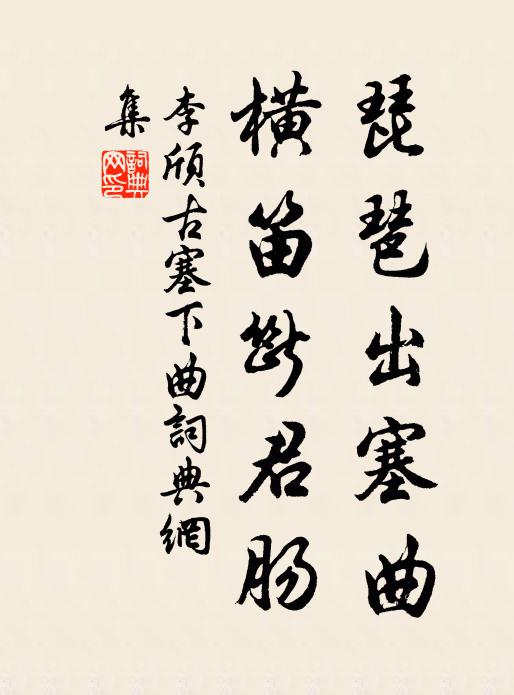 琵琶出塞曲
橫笛斷君肠
李頎古塞下曲詞典網
集
詞典
网印